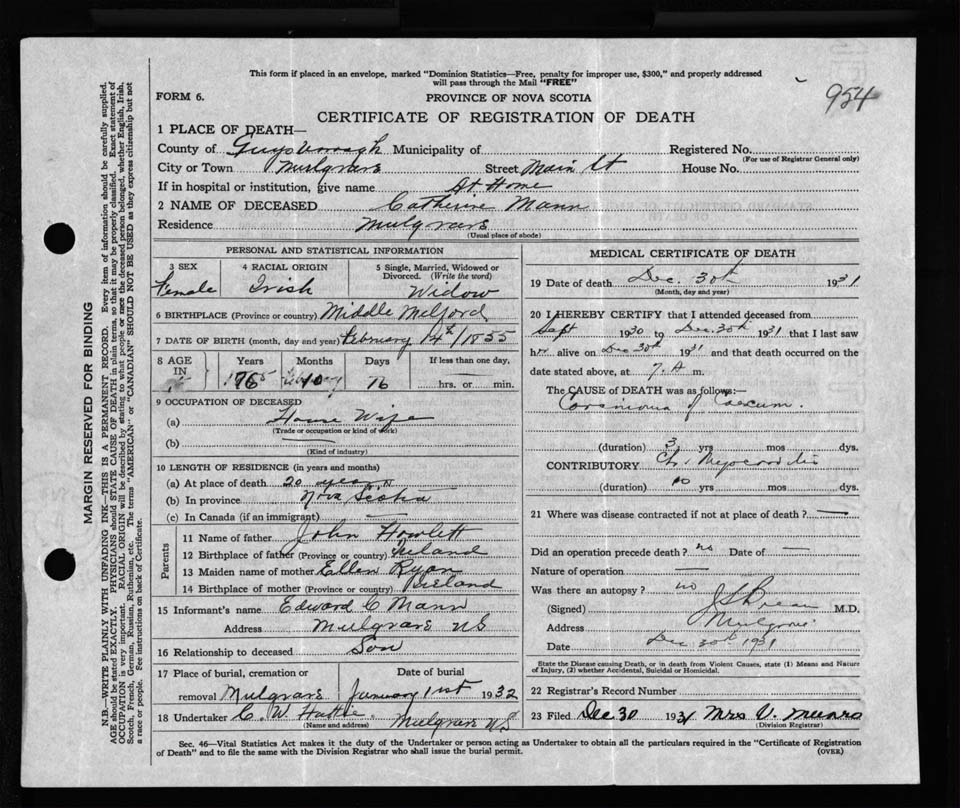 This form if placed in an envelope, marked "Dominion Statistics—Free, penalty for improper use, $300," and properly addressed
will pass through the Mail "FREE"
954
FORM 6.
PROVINCE OF NOVA SCOTIA
CERTIFICATE OF REGISTRATION OF DEATH
1 PLACE OF DEATH—
County of Guysborough Municipality of Registered No.
(For use of Registrar General only)
City or Town Mulgrave Street Main St House No.
If in hospital or institution, give name At Home
2 NAME OF DECEASED Catherine Mann
Residence Mulgrave
(Usual place of abode)
PERSONAL AND STATISTICAL INFORMATION
3 SEX
Female
4 RACIAL ORIGIN
Irish
5 Single, Married, Widowed or
Divorced. (Write the word)
Widow
6 BIRTHPLACE (Province or country) Middle Milford
7 DATE OF BIRTH (month, day and year) February 14th/1855
8 AGE
IN
Years
76
Months
10
Days
16
If less than one day,
hrs. or min.
9 OCCUPATION OF DECEASED
(a) House Wife
(Trade or occupation or kind of work)
(b) —
(Kind of industry)
10 LENGTH OF RESIDENCE (in years and months)
(a) At place of death 20 years
(b) In province Nova Scotia
(c) In Canada (if an immigrant) —
Parents
11 Name of father John Howlett
12 Birthplace of father (Province or country) Ireland
13 Maiden name of mother Ellen Ryan
14 Birthplace of mother (Province or country) Ireland
15 Informant's name Edward C Mann
Address Mulgrave NS
16 Relationship to deceased Son
17 Place of burial, cremation or
removal Mulgrave
Date of burial
January 1st 1932
18 Undertaker C. W Hattie Mulgrave NS
(Name and address)
MEDICAL CERTIFICATE OF DEATH
19 Date of death Dec. 30th 1931
(Month, day and year)
20 I HEREBY CERTIFY that I attended deceased from
Sept 1930 to Dec. 30th 1931 that I last saw
her alive on Dec 30th 1931 and that death occurred on the
date stated above, at 7. A m.
The CAUSE of DEATH was as follows:—
Carcinoma of Caecum.
(duration) 3 yrs mos dys.
CONTRIBUTORY Ch. Myocarditis
(duration) 10 yrs mos dys.
21 Where was disease contracted if not at place of death? —
Did an operation precede death? no Date of —
Nature of operation —
Was there an autopsy? no
(Signed) M.D.
Address Mulgrave
Date Dec 30th 1931
State the Disease causing Death, or in death from Violent Causes, state (1) Means and Nature
of Injury, (2) whether Accidental, Suicidal or Homicidal.
22 Registrar's Record Number
23 Filed Dec 30 1931 Mrs V. Munro
(Division Registrar)
Sec. 46—Vital Statistics Act makes it the duty of the Undertaker or person acting as Undertaker to obtain all the particulars required in the "Certificate of Registration
of Death" and to file the same with the Division Registrar who shall issue the burial permit.
(OVER)
MARGIN RESERVED FOR BINDING
N.B.—WRITE PLAINLY WITH UNFADING INK—THIS IS A PERMANENT RECORD. Every item of information should be carefully supplied.
AGE should be stated EXACTLY. PHYSICIANS should STATE CAUSE OF DEATH in plain terms, so that it may be properly classified. Exact statement of
OCCUPATION is very important. RACIAL ORIGIN will be described by stating to what people or race the deceased person belonged, whether English, Irish,
Scotch, French, German, Russian, Ruthenian, etc. The terms "AMERICAN" or "CANADIAN" SHOULD NOT BE USED as they express citizenship but not
a race or people. See instructions on back of Certificate.